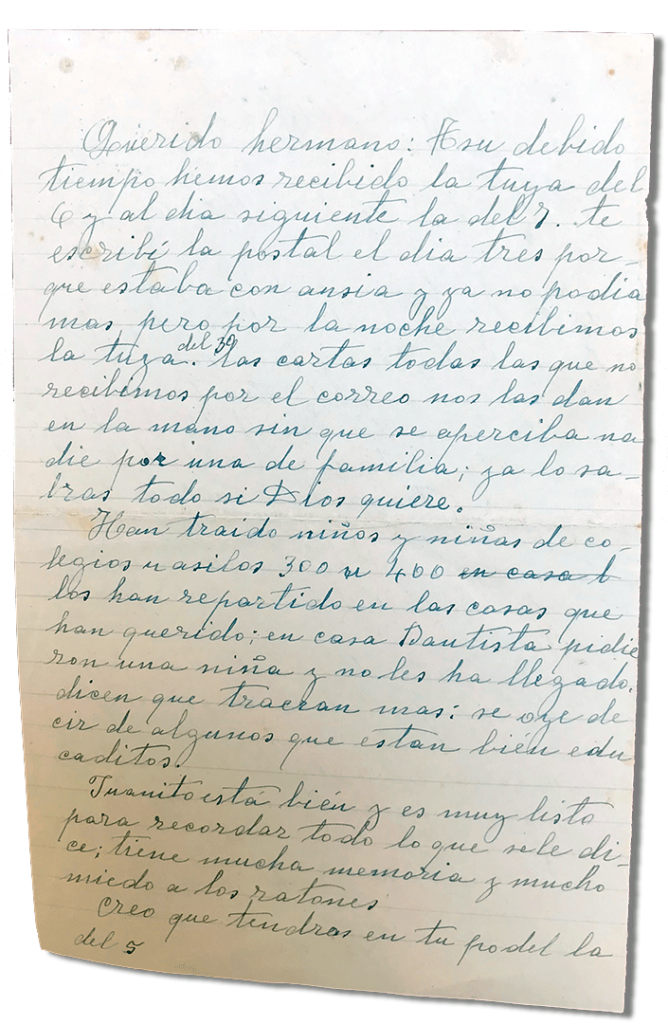 Querido hermano: A su debido
tiempo hemos recibido la tuya del
6 y al dia siguiente la del 7. te
escribí la postal el dia tres por-
que estaba con ansia y ya no podia
mas pero por la noche recibimos
la tuya del 30. las cartas todas las que no
recibimos por el correo nos las dan
en la mano sin que se aperciba na
die por una de familia; ya lo sa-
bras todo si Dios quiere.
Han traido niños y niñas de co-
legios y asilos 300 u 400 en casa l
los han repartido en las casas que
han querido; en casa Bautista pidie
ron una niña y no les ha llegado.
dicen que traeran mas: se oye de
cir de algunos que estan bién edu
caditos.
Juanito está bién y es muy listo
para recordar todo lo que se le di-
ce; tiene mucha memoria y mucho
miedo a los ratones
Creo que tendras en tu po del la
del 5